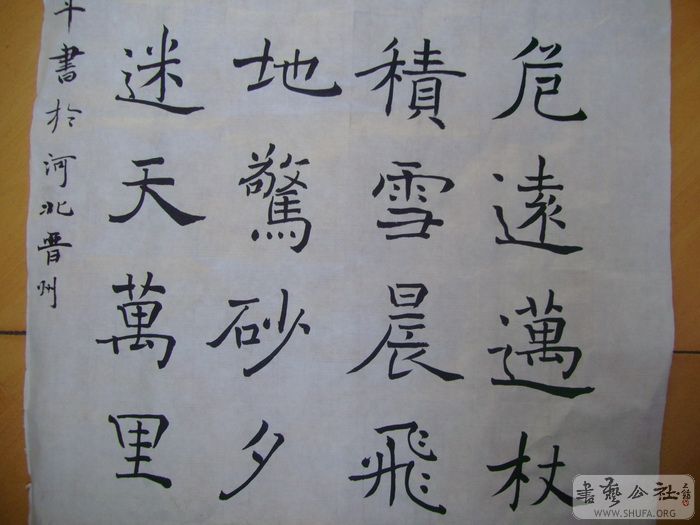 危遠邁杖
積雪晨飛
地驚砂夕
迷天萬里
书於河北晋州
書藝公社
WWW.SHUFA.ORG